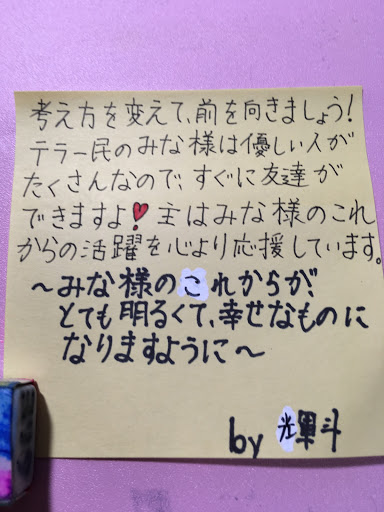 考え方を変えて、前を向きましょう!
テラー民のみな様は優しい人が
たくさんなので、すぐに友達が
できますよ❤主はみな様のこれ
からの活躍を心より応援しています。
～みな様のこれからが、
とても明るくて、幸せなものに
なりますように～
by 輝斗